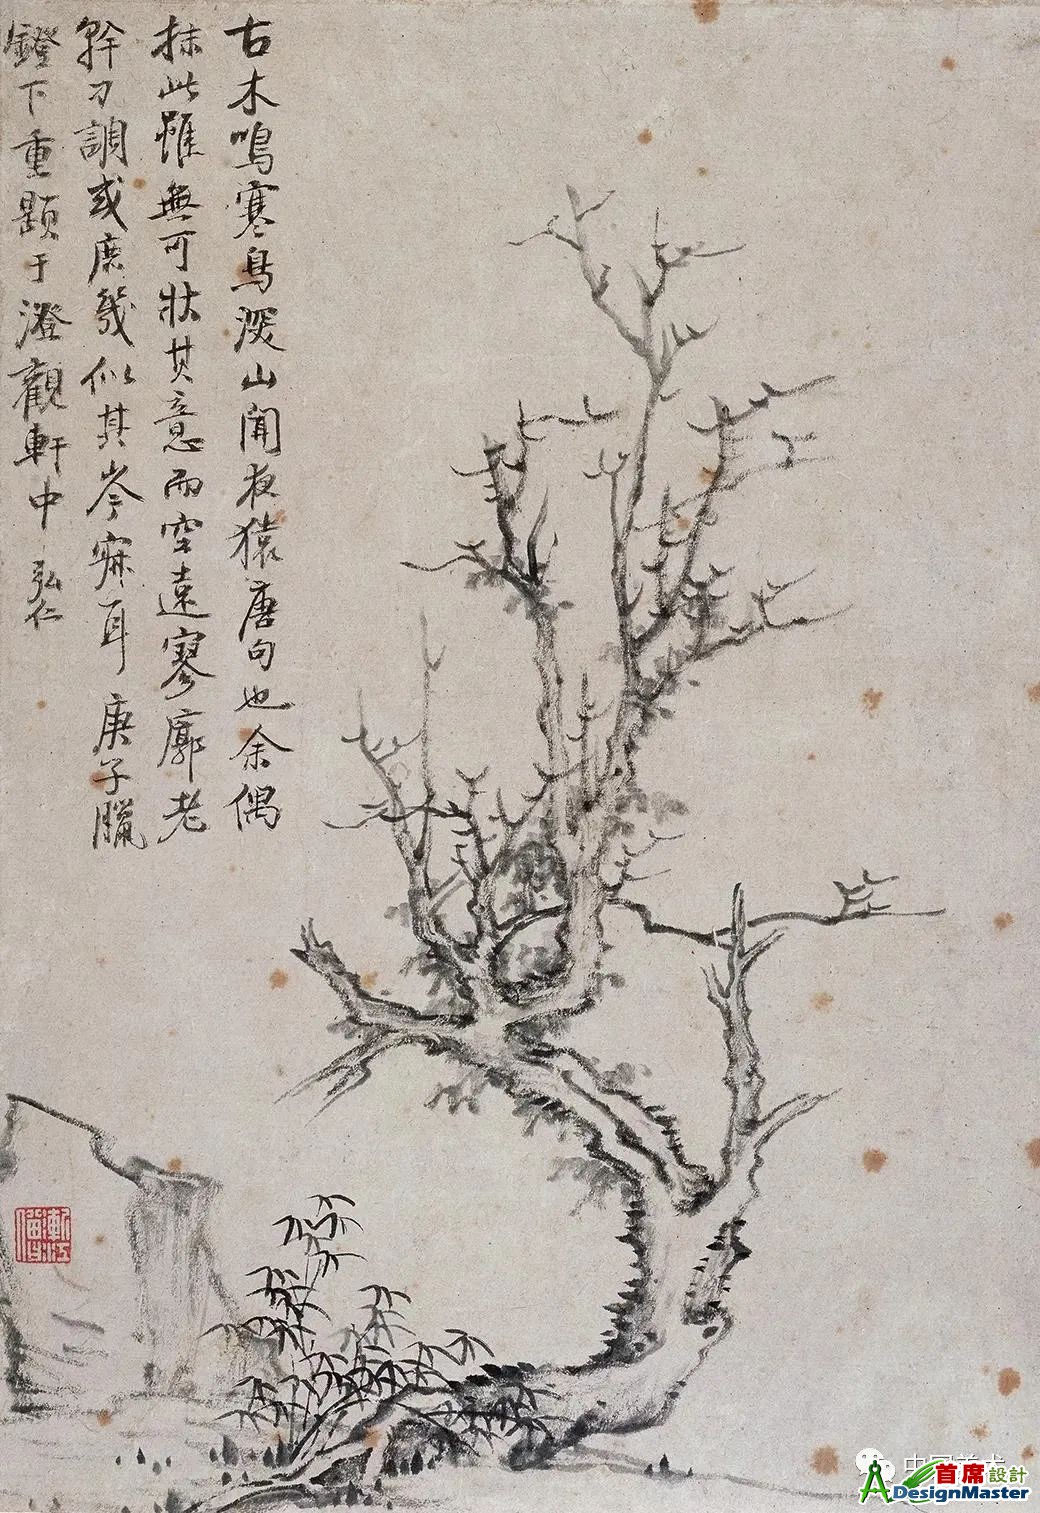 古木鳴寒鳥深山聞夜猿唐句也余偶
抹此雖無可狀其意而空遠寥廓老
幹刁調或庶幾似其岑寂耳庚子臘
鐙下重題于澄觀軒中 弘仁
漸江僧
中国美术
首席設計
ADesignMaster